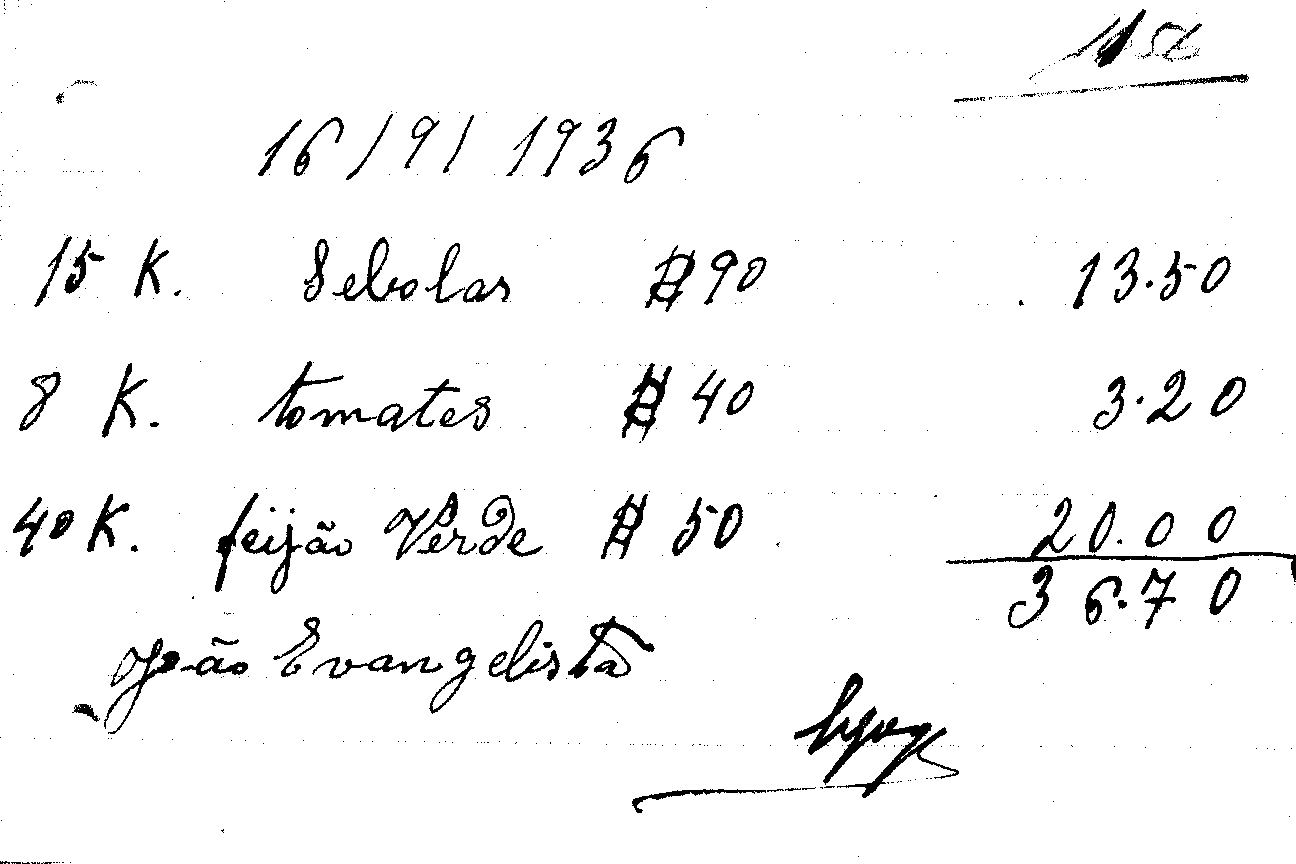 16/9/1936
15 K. Sebolas $90 13.50
8 K. tomates $40 3.20
40 K. feijão Verde $50 20.00
36.70
João Evangelista